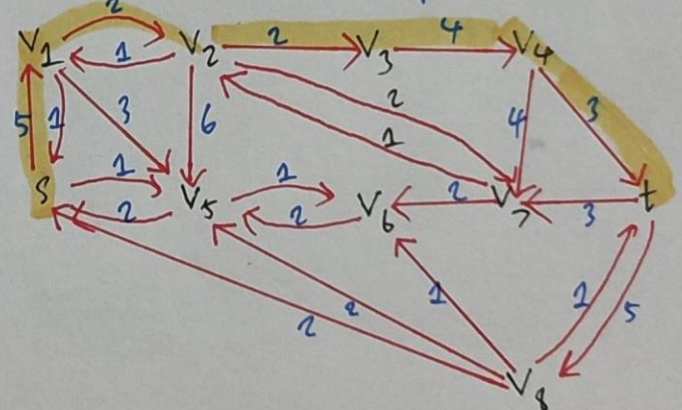 2
V1 1 V2 2 V3 4 V4
5 1 3 6 2 1 4 3
S 1 2 V5 1 2 V6 2 V7 3 t
2 2 1 1 5
V8